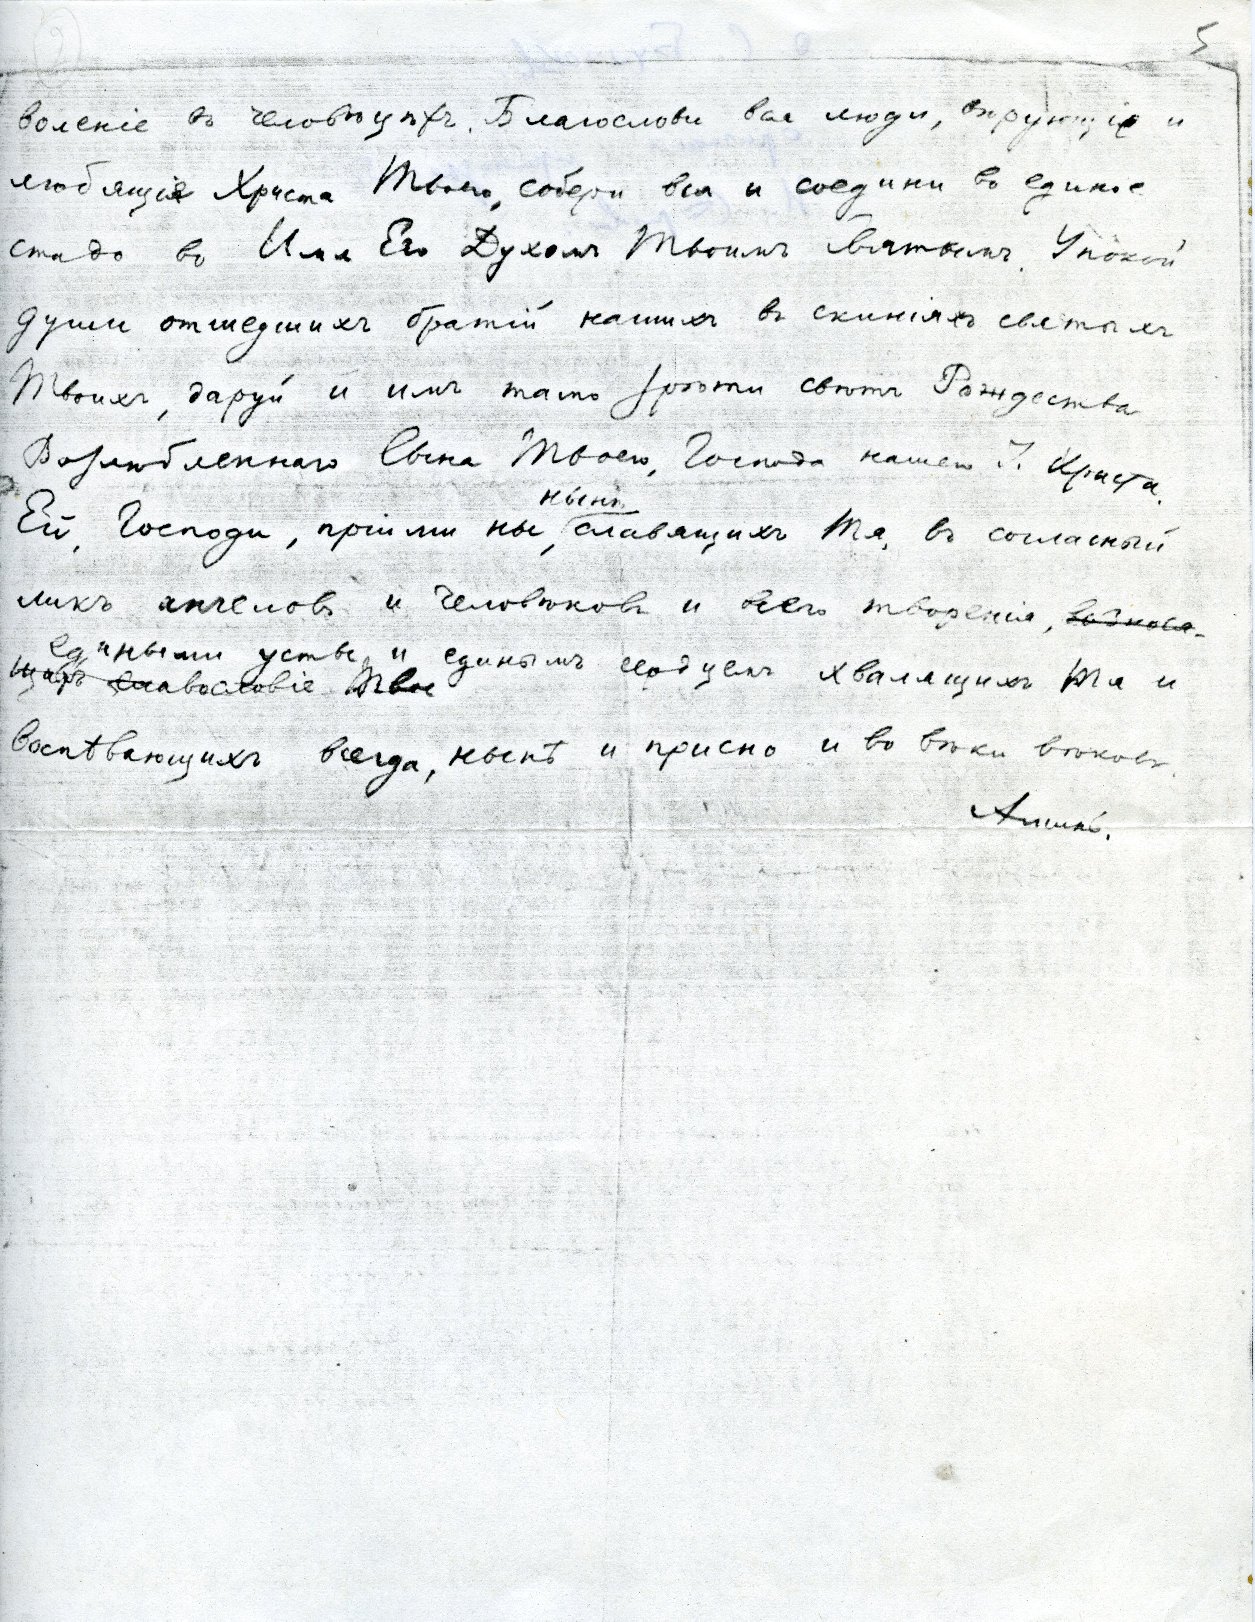 5
воленіе въ человѣцѣхъ. Благослови вся люди, вѣрующія и
любящія Христа Твоего, собери вся и соедини во единое
стадо во Имя Его Духомъ Твоимъ Святымъ. Упокой
души отшедшихъ братій нашихъ въ скиніяхъ святыхъ
Твоихъ, даруй и имъ тамо зрѣти свѣтъ Рождества
Возлюбленнаго Сына Твоего, Господа нашего І. Христа.
нынѣ
Ей, Господи, пріими ны, славящихъ Тя, въ согласный
ликъ ангеловъ и человѣковъ и всего творенія, вознося-
едиными усты и единымъ сердцемъ хвалящихъ Тя и
щихъ славословіе Твое
воспѣвающихъ всегда, нынѣ и присно и во вѣки вѣковъ.
Аминь.